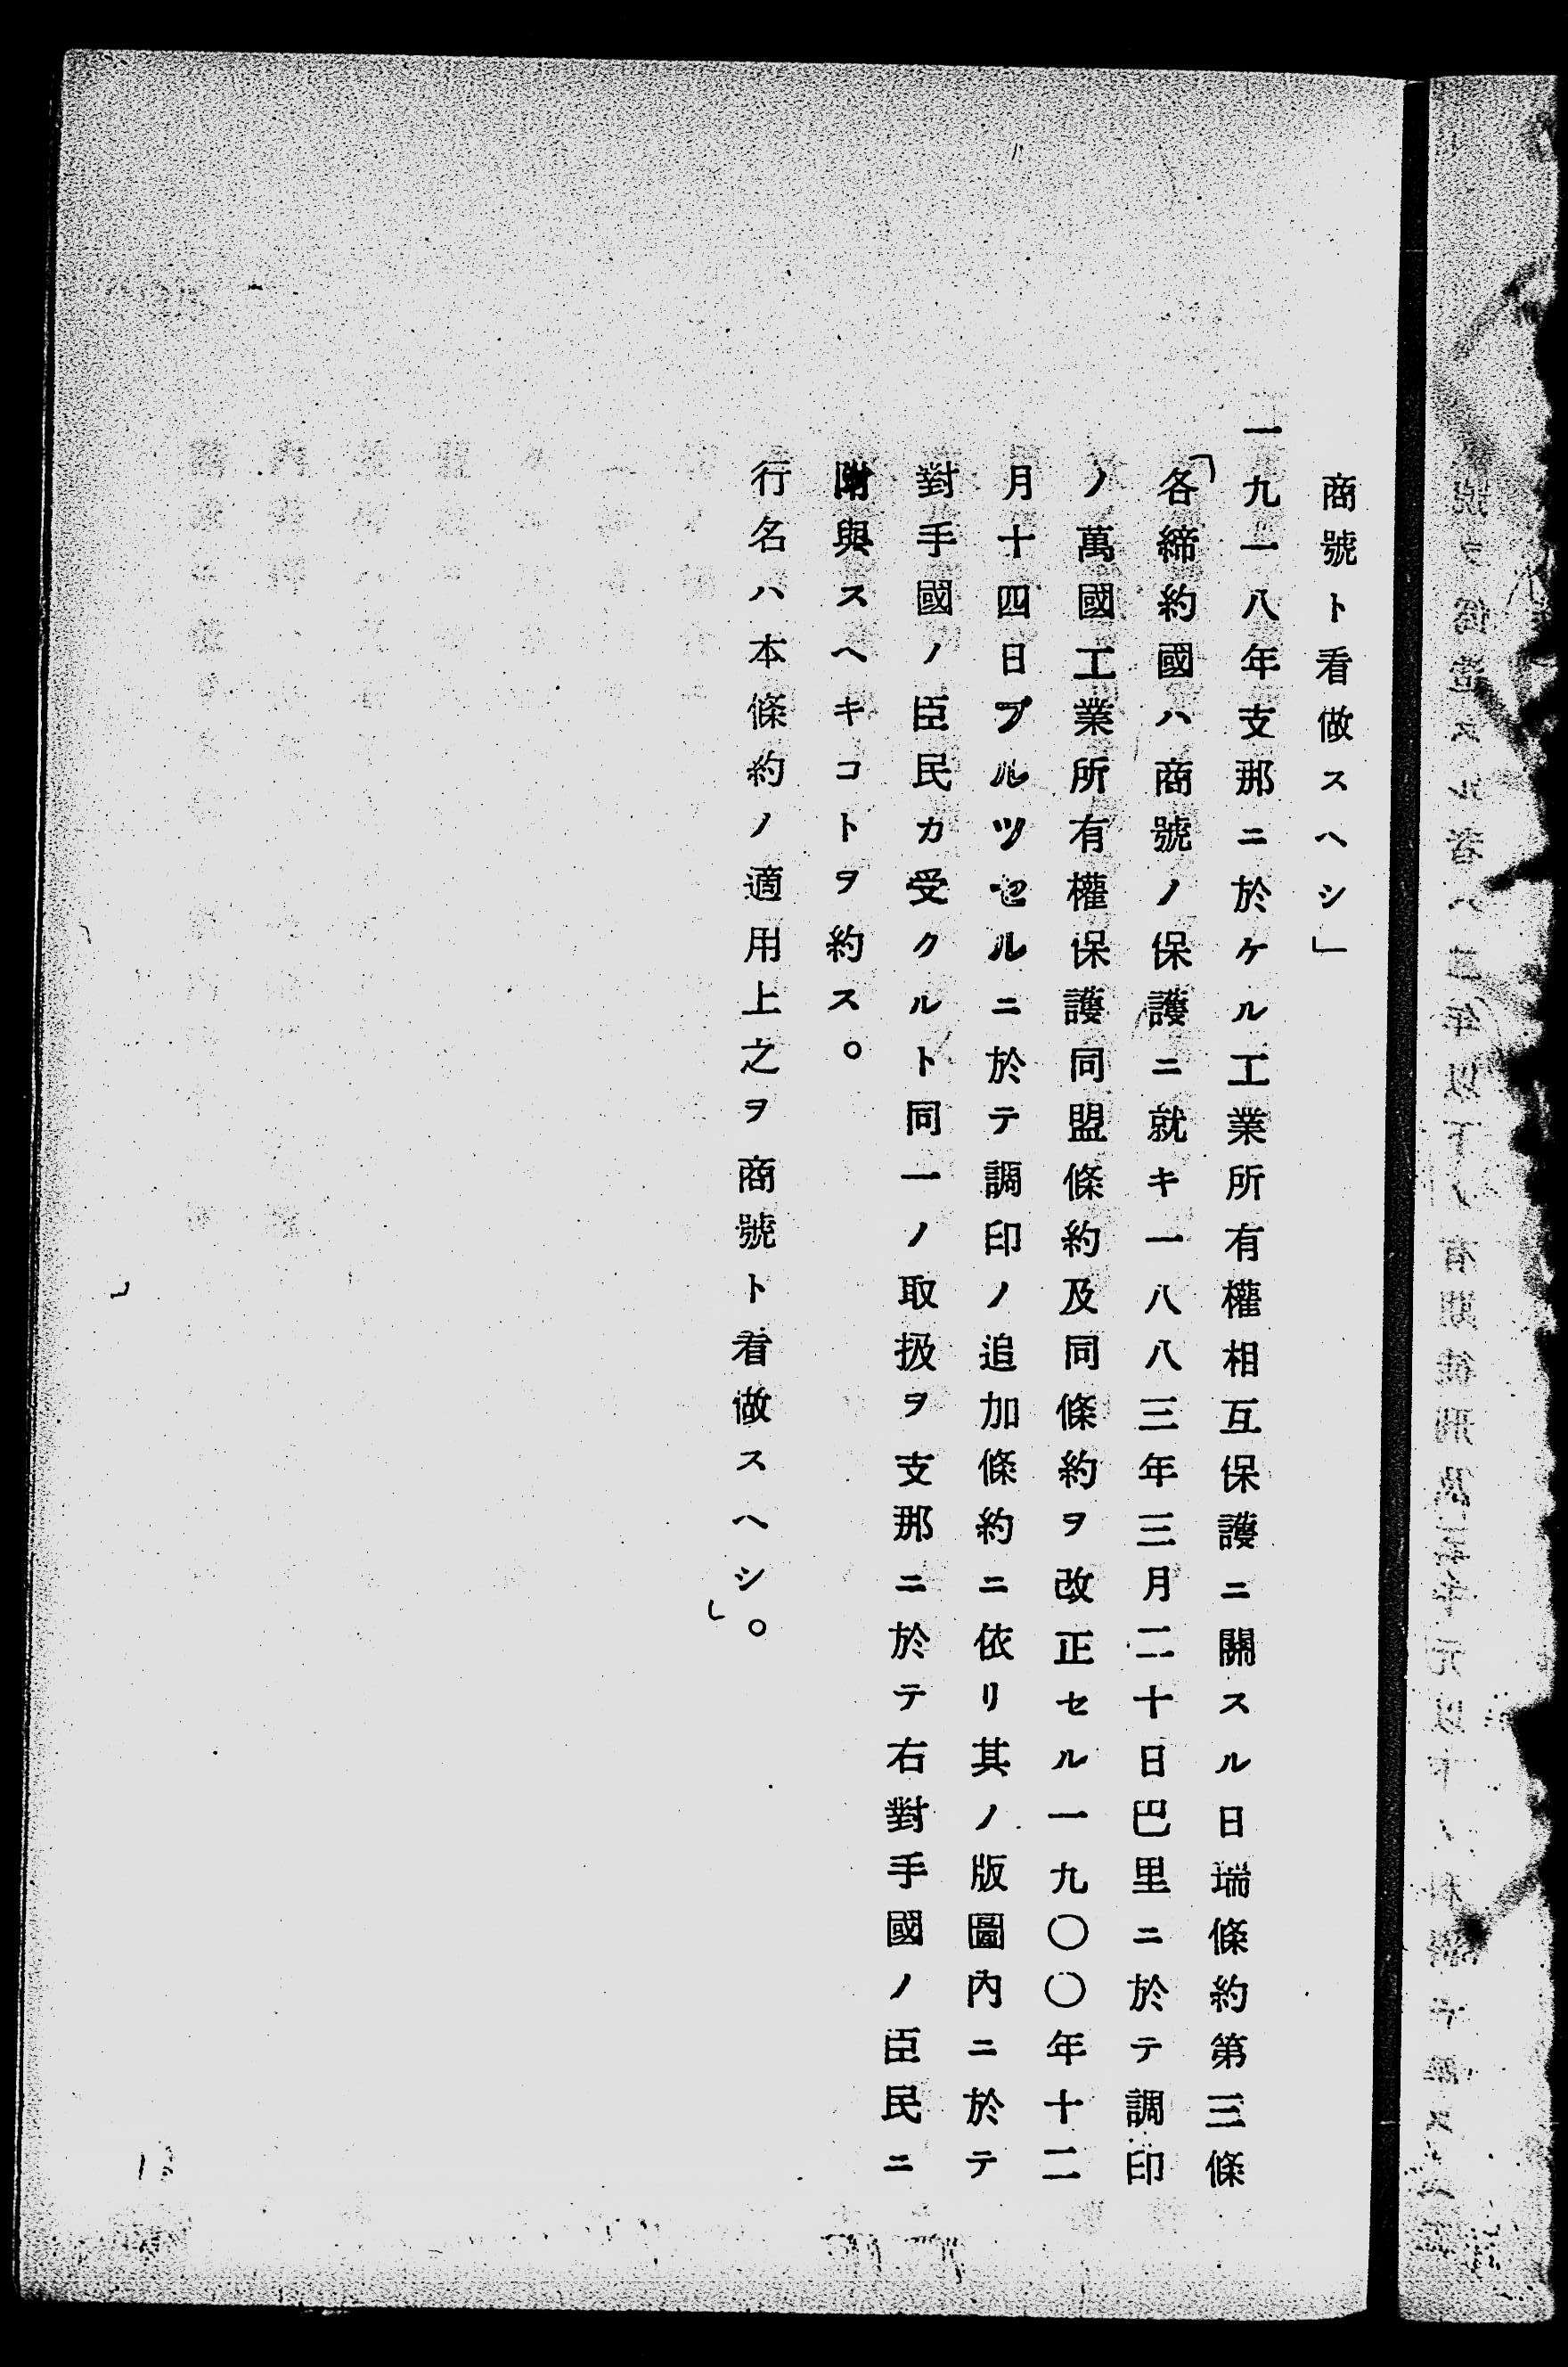 商號ト看做スヘシ」
一九一八年支那ニ於ケル工業所有權相互保護ニ關スル日瑞條約第三條
「各締約國ハ商號ノ保護ニ就キ一八八三年三月二十日巴里ニ於テ調印
ノ萬國工業所有權保護同盟條約及同條約ヲ改正セル一九〇〇年十二
月十四日ブルツセルニ於テ調印ノ追加條約ニ依リ其ノ版圖內ニ於テ
對手國ノ臣民カ受クルト同一ノ取扱ヲ支那ニ於テ右對手國ノ臣民ニ
附與スヘキコトヲ約ス。
行名ハ本條約ノ適用上之ヲ商號ト看做スヘシ。」